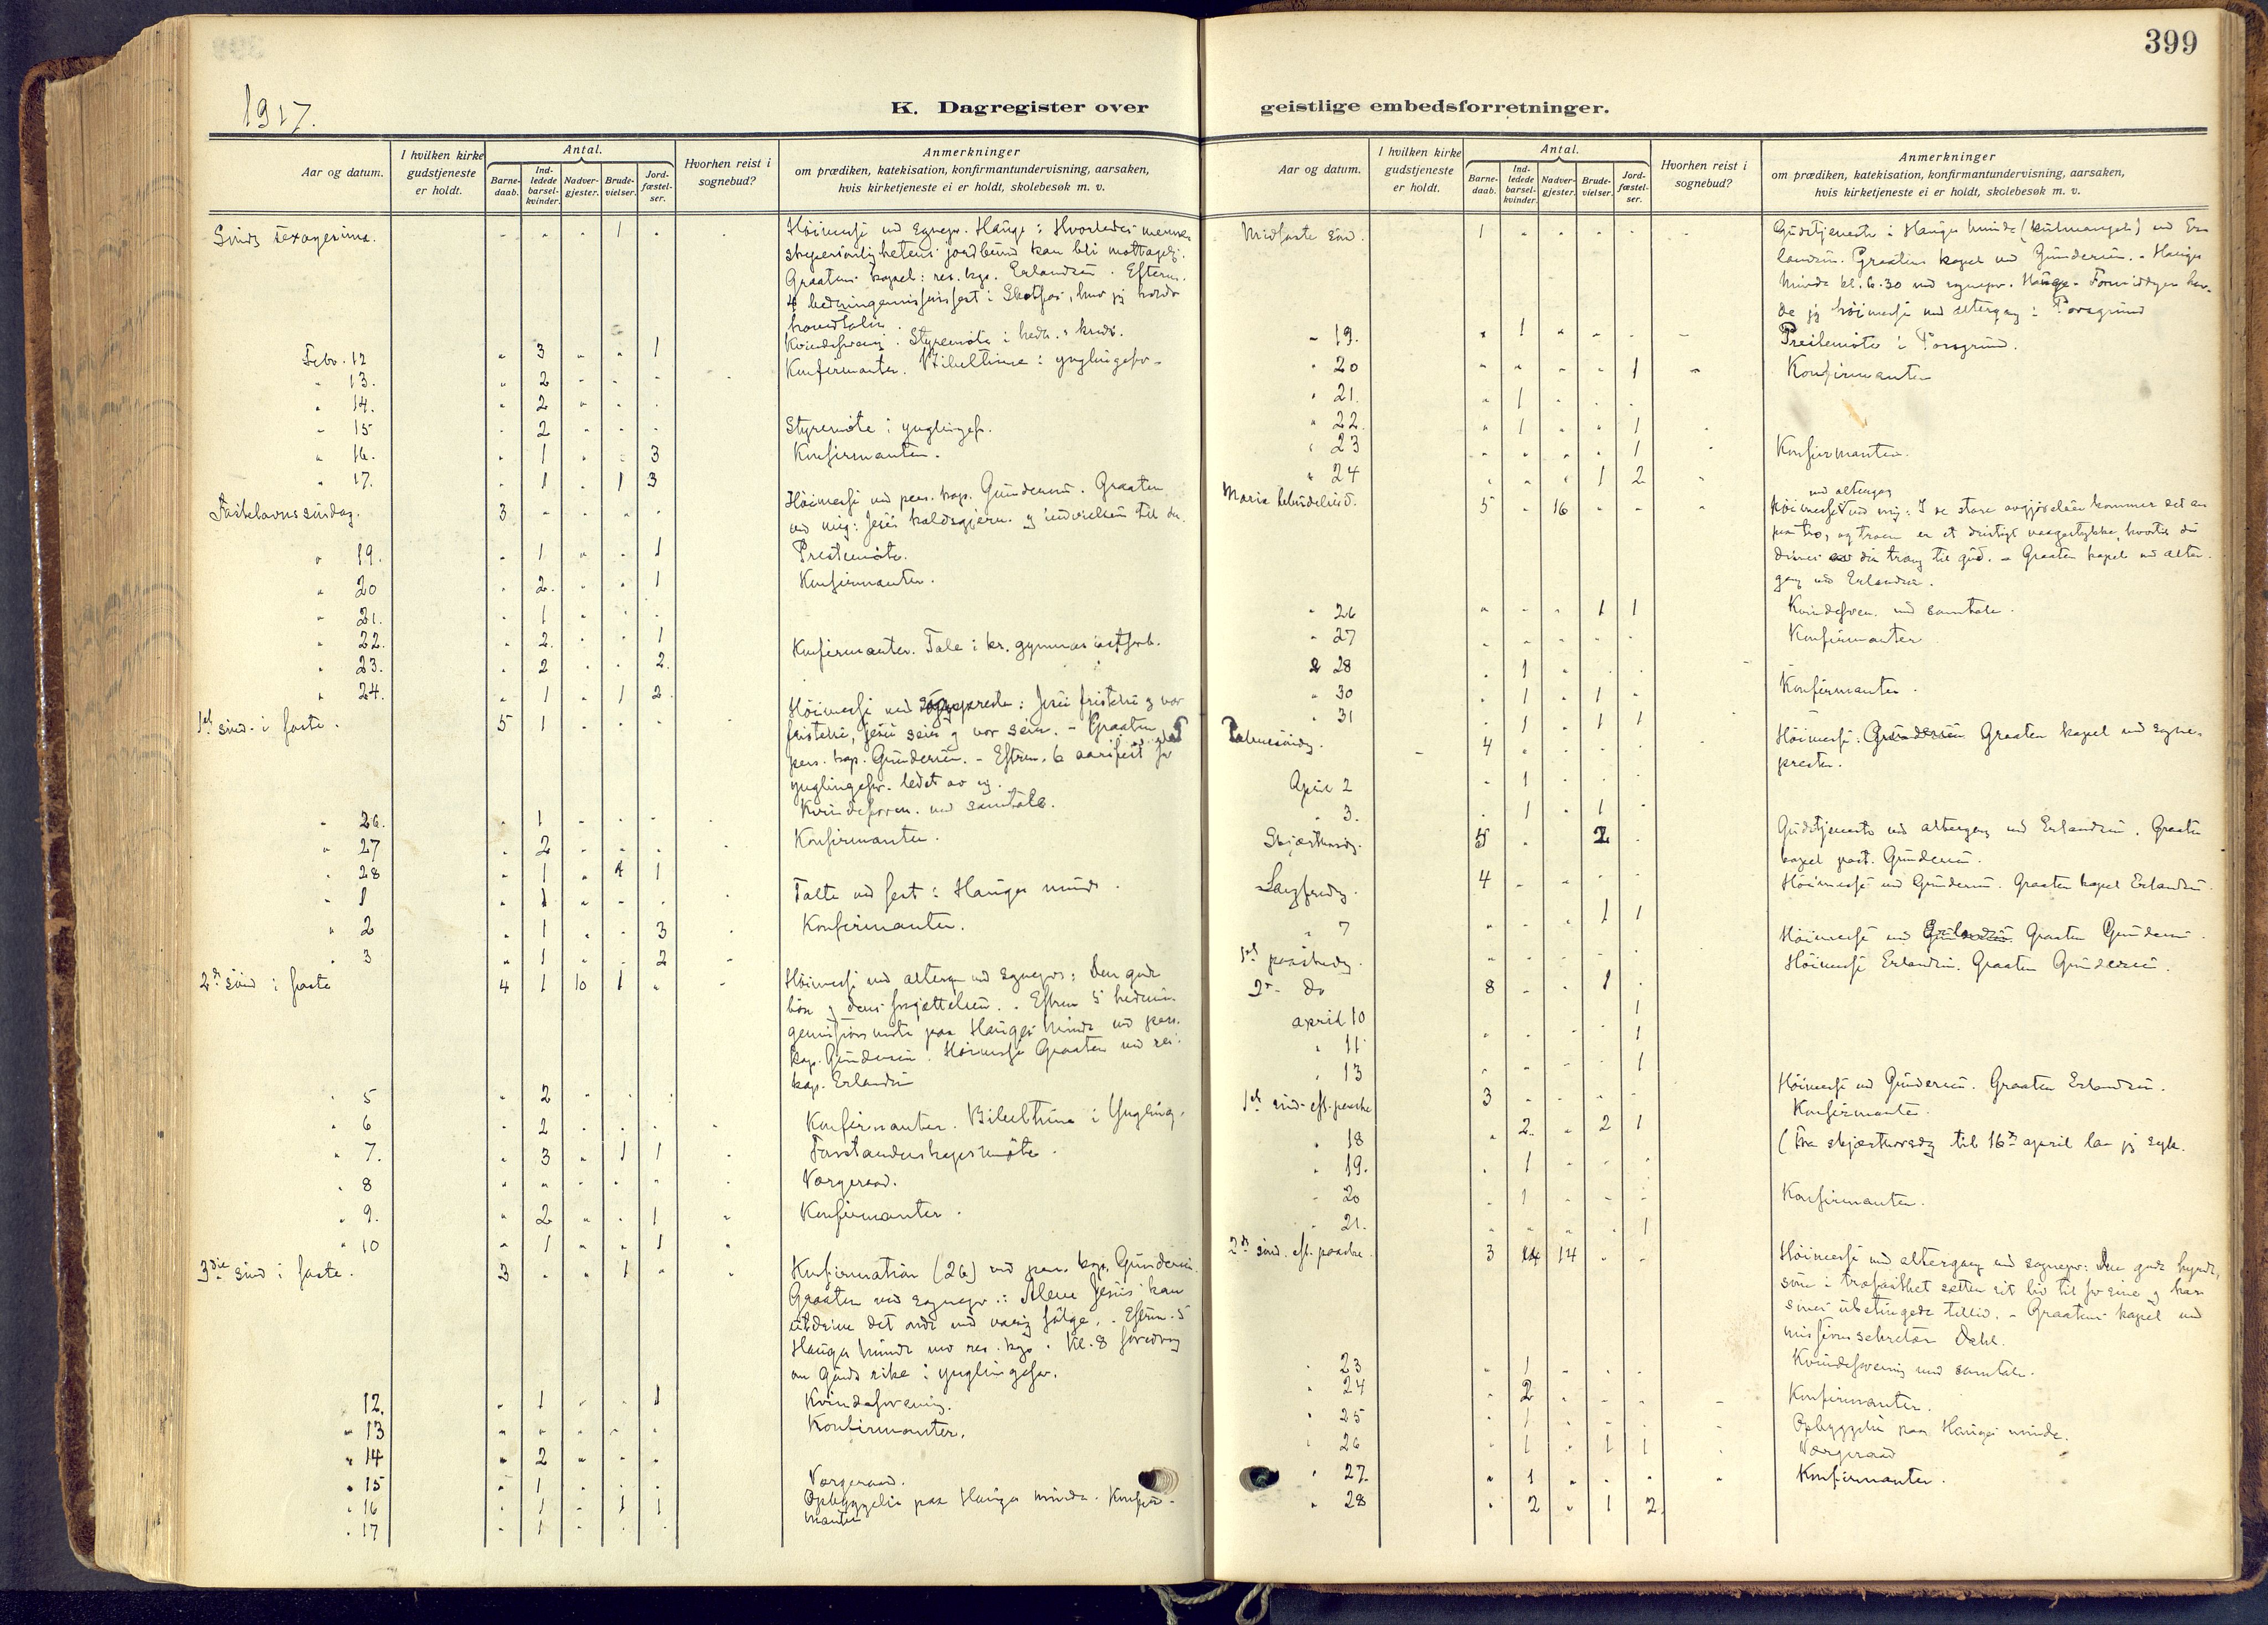 399
1917.
K. Dagregister over geistlige embedsforretninger.
Aar og datum.
I hvilken kirke gudstjeneste er holdt.
Antal.
Barnedaab.
Indledede barselkvinder.
Nadvergjester.
Brudevielser.
Jordfæstelser.
Hvorhen reist i sognebud?
Anmerkninger
om prædiken, katekisation, konfirmantundervisning, aarsaken,
hvis kirketjeneste ei er holdt, skolebesøk m. v.
Sønds sexagesima. 1 Høimesse ved sognepr. Hauge: Hvorledes menne-
skepersonlighetens jordbund kan bli mottagelig.
Graatens kapel: res. kap. Erlandsen. Efterm.
4 hedningemissionsfest i Skotfos, hvor jeg holdt
hovedtalen.
Febr. 12 3 1 Kvindeforening. Styremøte i hedn. kreds.
" 13. 2 Konfirmanter. Bibeltime i ynglingefor-
" 14. 2
" 15 2 Styremøte i ynglingef.
" 16. 1 3 Konfirmanter.
" 17. 1 1 3
Fastelavnssøndag. 3 Høimesse ved pers. kap. Gundersen. Graaten
ved mig: Jesu kaldsgjern. og indvielsen til den.
" 19. 1 1 Prestemøte.
" 20 2. 1 Konfirmanter.
" 21. 1
" 22. 2. 1
" 23. 2 2. Konfirmanter. Tale i kr. gymnasiastforb.
" 24. 1 1 2
1ste sønd. i faste. 5 1 Høimesse ved sognepresten: Jesu fristelse og vor
fristelse, Jesu seier og vor seier. - Graaten ved
pers. kap. Gundersen. - Efterm. 6 aarsfest for
ynglingefor. ledet av mig.
" 26. 1 Kvindeforen. ved samtale.
" 27 2 Konfirmanter.
" 28 1 1 1
" 1 1 Talte ved fest i Hauges minde.
" 2 1 3 Konfirmanter.
" 3 1 2
2den sønd i faste 4 1 10 1 Høimesse med alterg. ved sognepr: Den gode
bøn og dens frugt. - Efterm 5 hednin-
gemissionsmøte paa Hauges minde ved pers.
kap. Gundersen. Høimesse Graaten ved res.
kap. Erlandsen
" 5 2
" 6 2 Konfirmanter. Bibeltime i Yngling.
" 7. 3 1 1 Forstanderskapsmøte.
" 8 Værgeraad.
" 9. 2 1 Konfirmanter.
" 10 1 1
3die sønd i faste. 3 1 Konfirmation (26) ved pers. kap. Gundersen.
Graaten ved sognepr.: Alene Jesus kan
utdrive det onde med varig følge. - Efterm. 5
Hauges minde ved res. kap. Kl. 8 foredrag
om Guds rike i ynglingefor.
12. 1 1 Kvindeforening.
" 13 Konfirmanter.
" 14 2
" 15 1 Værgeraad.
" 16 1 1 1 Opbyggelse paa Hauges minde. Konfir-
manter
" 17 1
Aar og datum.
I hvilken kirke gudstjeneste er holdt.
Antal.
Barnedaab.
Indledede barselkvinder.
Nadvergjester.
Brudevielser.
Jordfæstelser.
Hvorhen reist i sognebud?
Anmerkninger
om prædiken, katekisation, konfirmantundervisning, aarsaken,
hvis kirketjeneste ei er holdt, skolebesøk m. v.
Midfaste sønd. 1 Gudstjeneste i Hauges minde (kulmangel) ved Er-
landsen. Graatens kapel ved Gundersen. - Hauges
minde kl. 6.30 ved sognepr. Hauge - Formiddagen hav-
de jeg høimesse med altergang i Porsgrund
" 19. 1 Prestemøte i Porsgrund.
" 20 1 Konfirmanter
" 21. 1
" 22. 1 1
" 23 1 Konfirmanter.
" 24 1 2
Mariæ bebudelsesd. 5 16 Høimesse med altergang ved mig: I de store avgjørelser kommer det an
paa tro, og troen er et dristigt vaagestykke, hvortil du
drives av din trang til gud. - Graaten kapel med alter-
gang ved Erlandsen.
" 26 1 1 Kvindeforen. med samtale.
" 27 Konfirmanter
" 28 1
" 30 1 1 Konfirmanter.
" 31 1 1 1
Palmesøndag. 4 Høimesse: Gundersen Graaten kapel ved sogne-
presten.
April 2 1
" 3. 1 1
Skjærtorsdag. 5 2 Gudstjeneste med altergang ved Erlandsen. Graaten
kapel past. Gundersen.
Langfredag. 4 Høimesse ved Gundersen. Graaten kapel Erlandsen.
" 7 1 1
1ste paaskedag. Høimesse ved Erlandsen. Graaten Gundersen.
2den do 8 1 Høimesse Erlandsen. Graaten Gundersen.
april 10 1
" 11 1
" 13 1
1ste sønd. eft. paaske 3 Høimesse ved Gundersen. Graaten Erlandsen.
Konfirmanter.
" 18 2 2 1 (Fra skjærtorsdag til 16de april laa jeg syk.
" 19. 1
" 20 1 Konfirmanter.
" 21. 1
2den sønd. eft. paaske. 3 14 Høimesse med altergang ved sognepr: Den gode hyrde,
som i trofasthet sætter sit liv til for sine og har
sines ubetingede tillid. - Graatens kapel ved
missionssekretær Dahl.
" 23 1 Kvindeforening med samtale.
" 24 2 Konfirmanter.
" 25 1 Opbyggelse paa Hauges minde.
" 26 1 1 1 Værgeraad
" 27. 1 Konfirmanter.
" 28 2 1 2.